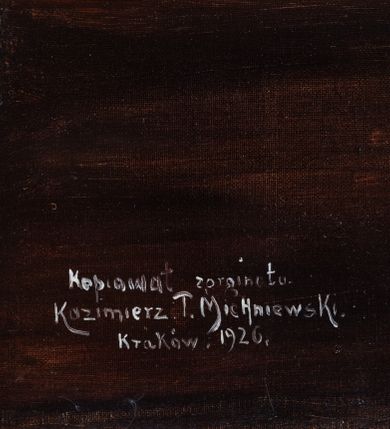 Kopiował zorginału.
Kazimierz T. Michniewski.
Kraków. 1926.